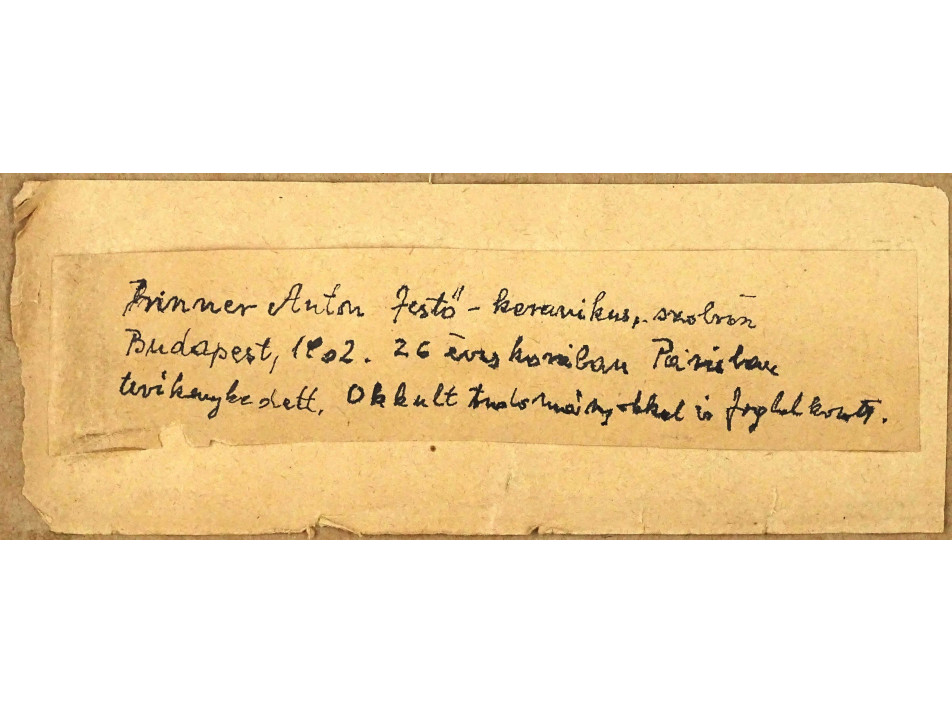 Prinner Anton festő - keramikus, szobrás
Budapest, 1902. 26 éves korában Párisban
tevékenykedett. Okkult tudományokkal is foglalkozott.